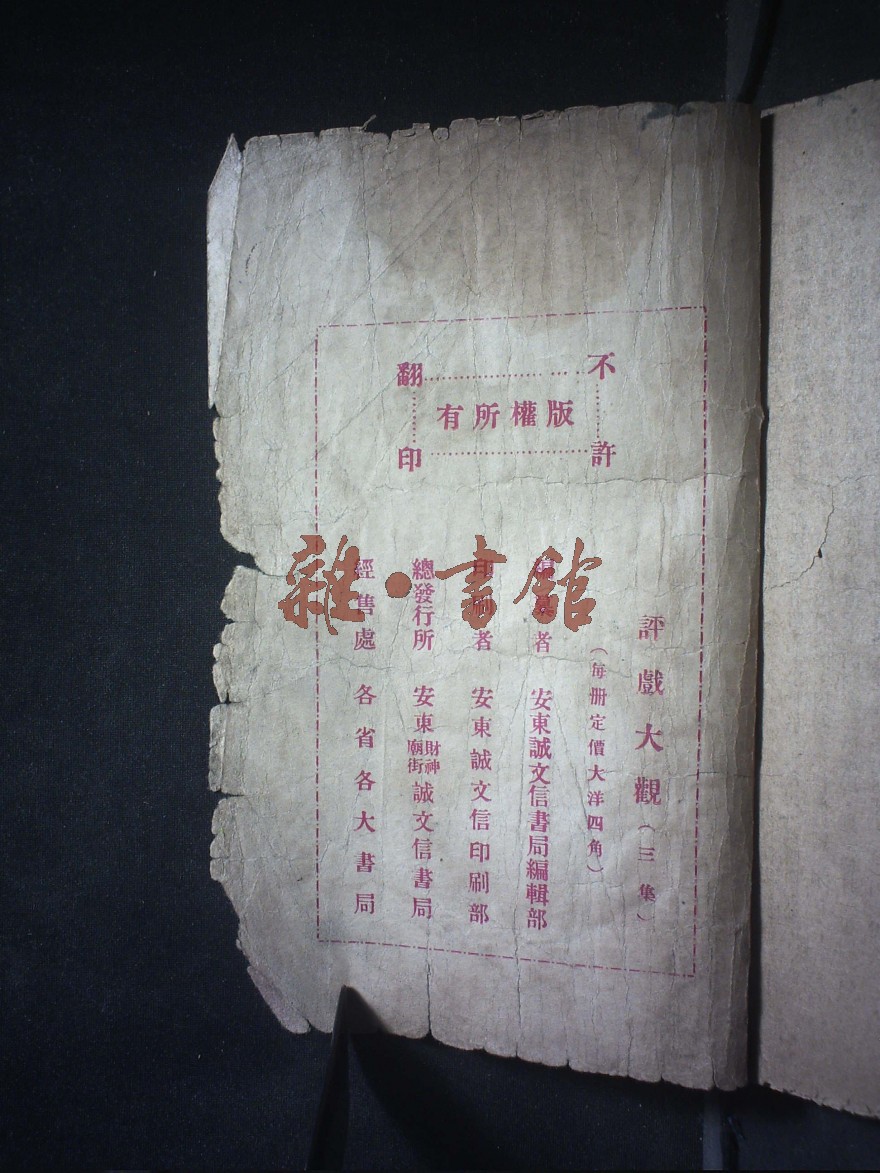 不許翻印
版權所有
評戲大觀(三集)
(每册定價大洋四角)
者 安東誠文信書局編輯部
印刷者 安東誠文信印刷部
總發行所 安東財神廟街誠文信書局
經售處 各省各大書局
雜·書館